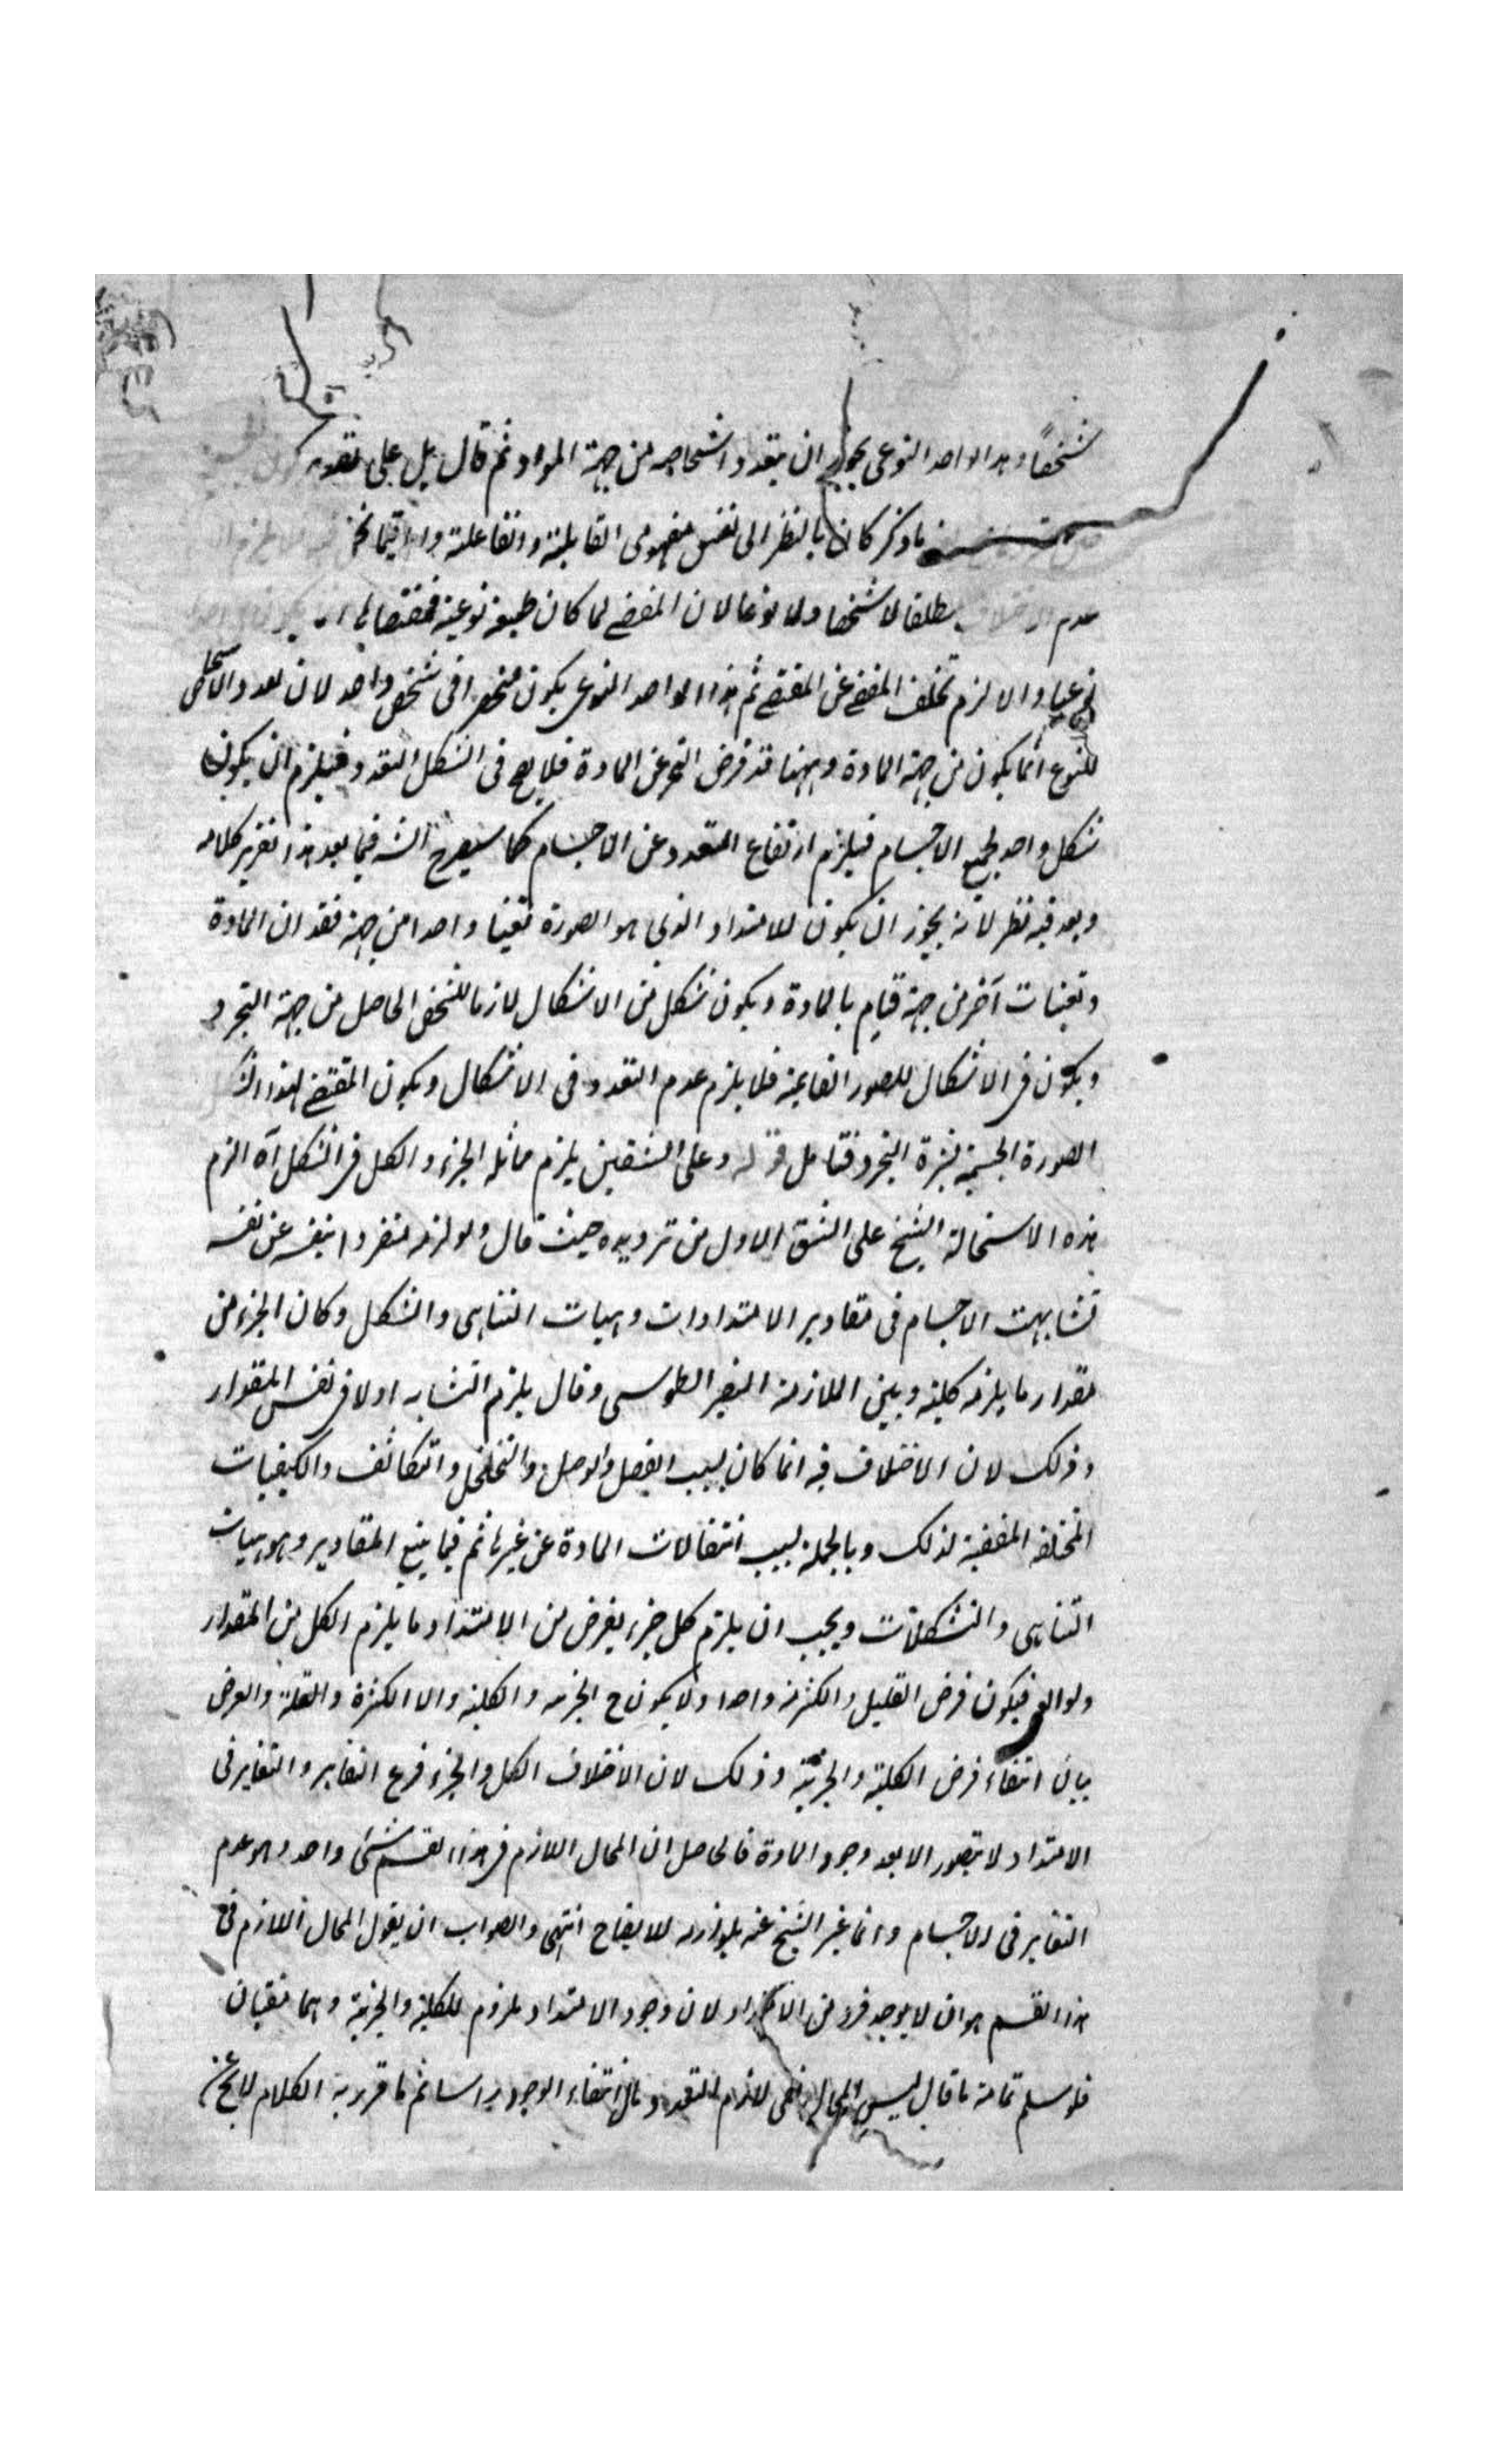 شخصاً وهذا الواحد النوعى يجوز ان يتعدد اشخاصه من جهة المواد ثم قال بل على تقدير كون
ما ذكر كان بالنظر الى نفس مفهومى القابلية والفاعلية واما
عدم مطلقا لا شخصا ولا نوعا لان المقتضى لما كان طبيعة نوعية فمقتضاها
نوعيا والا لزم تخلف المقتضى عن المقتضى ثم هذا الواحد النوعى يكون منحصرا فى شخص واحد لان تعدد الاشخاص
للنوع انما يكون من جهة المادة وههنا قد فرض التجرد عن المادة فلا يصح فى الشكل التعدد فيلزم ان يكون
شكل واحد لجميع الاجسام فيلزم ارتفاع التعدد عن الاجسام كما سيصرح الشـ فيما بعد هذا تقرير كلامه
وبعد فيه نظر لانه يجوز ان يكون للامتداد الذى هو الصورة تعينا واحدا من جهة فقدان المادة
وتعينات آخر من جهة قيامه بالمادة ويكون شكل من الاشكال لازما للشخص الحاصل من جهة التجرد
ويكون فى الاشكال للصور القائمة فلا يلزم عدم التعدد فى الاشكال ويكون المقتضى لهذا
الصورة الجسمية بشرط التجرد فتامل قوله وعلى الشقين يلزم مماثلة الجزء والكل فى الشكل آه الزم
هذه الاستحالة الشيخ على الشق الاول من ترديده حيث قال ولو لزمه منفردا بنفسه عن نفسه
تشابهت الاجسام فى مقادير الامتدادات وهيات التناهى والشكل وكان الجزء من
مقدار ما يلزمه كليته وبين الملازمة النصير الطوسى وقال يلزم التشابه اولا فى نفس المقدار
وذلك لان الاختلاف فيه انما كان بسبب الفصل والوصل والتخلخل والتكاثف والكيفيات
المختلفة المقتضية لذلك وبالجملة بسبب انتقالات المادة عن غيرها ثم فيما يتبع المقادير وهو هيات
التناهى والتشكلات ويجب ان يلزم كل جزء يفرض من الامتداد ما يلزم الكل من المقدار
ولوازمه فيكون فرض القليل والكثير منه واحدا ولا يكون ح الجزئية والكلية والا الكثرة والقلة والغرض
بيان انتفاء فرض الكلية والجزئية وذلك لان الاختلاف الكل والجزء فرع التغاير والتغاير فى
الامتداد لا يتصور الا بعد وجود المادة فالحاصل ان المحال اللازم فى هذا القسم شئ واحد وهو عدم
التغاير فى الاجسام وانما عبر الشيخ عنه بلوازمه للايضاح انتهى والصواب ان يقول المحال اللازم فى
هذا القسم هو ان لا يوجد فرد من الامتداد لان وجود الامتداد ملزوم للكلية والجزئية وهما منفيان
فلو سلم تمامة ما قال ليس المحال نفى لازم التعدد بل انتفاء الوجود براسا ثم ما قرر به الكلام